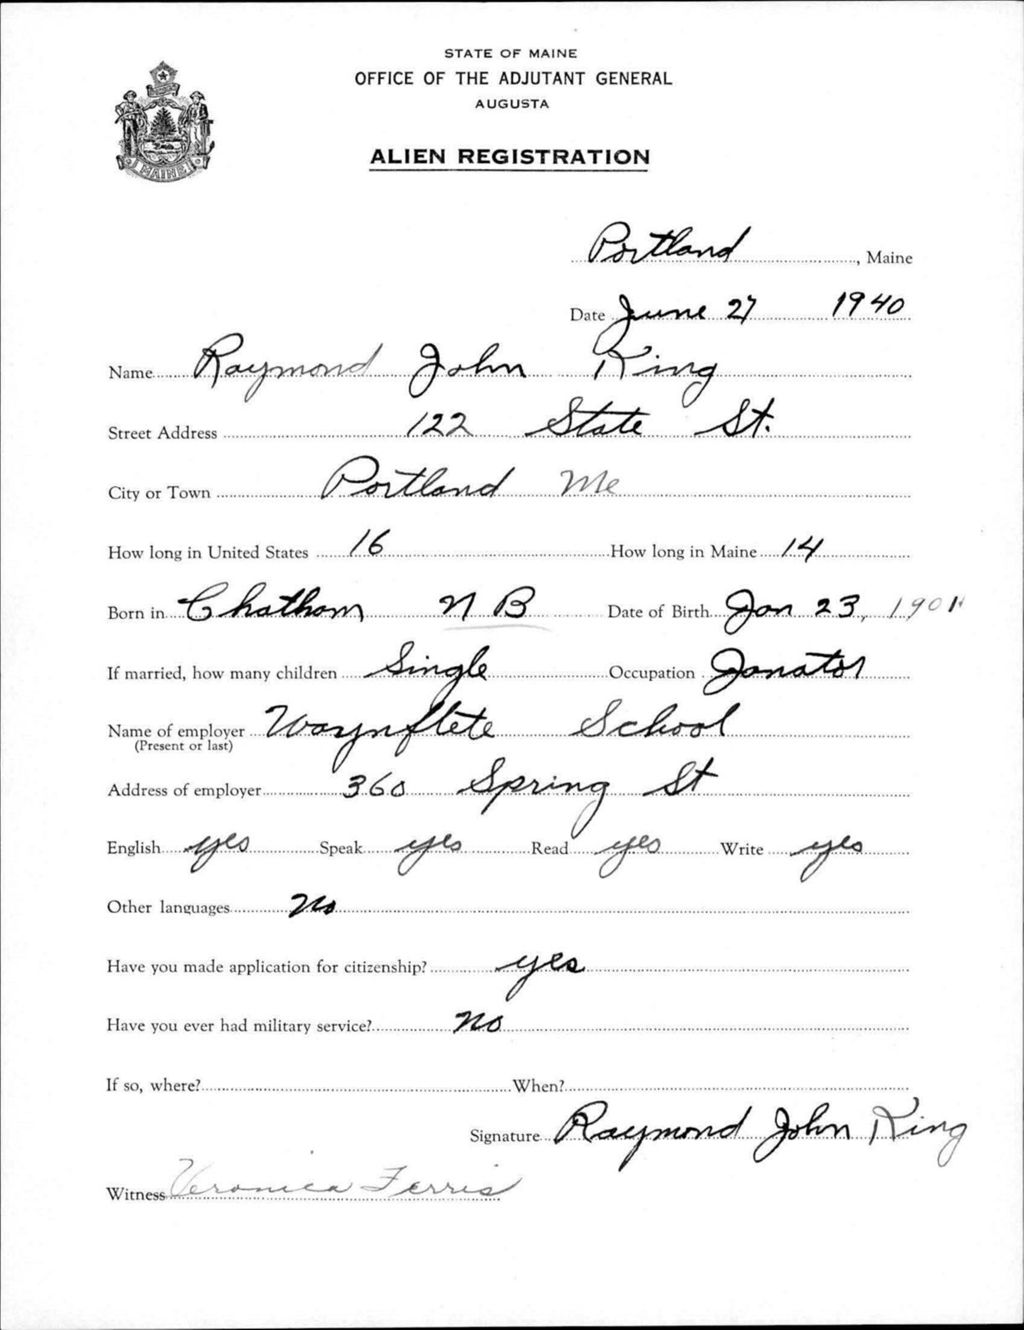 STATE OF MAINE
OFFICE OF THE ADJUTANT GENERAL
AUGUSTA
ALIEN REGISTRATION
MAINE
Portland, Maine
Date June 27 1940
Name Raymond John King
Street Address 122 State St.
City or Town Portland Me
How long in United States 16 How long in Maine 14
Born in Chatham N B Date of Birth Jan 23, 1901
If married, how many children Single Occupation Janator
Name of employer Waynflete School
(Present or last)
Address of employer 360 Spring St
English yes Speak yes Read yes Write yes
Other languages No
Have you made application for citizenship? yes
Have you ever had military service? no
If so, where? When?
Signature Raymond John King
Witness Veronica Ferris